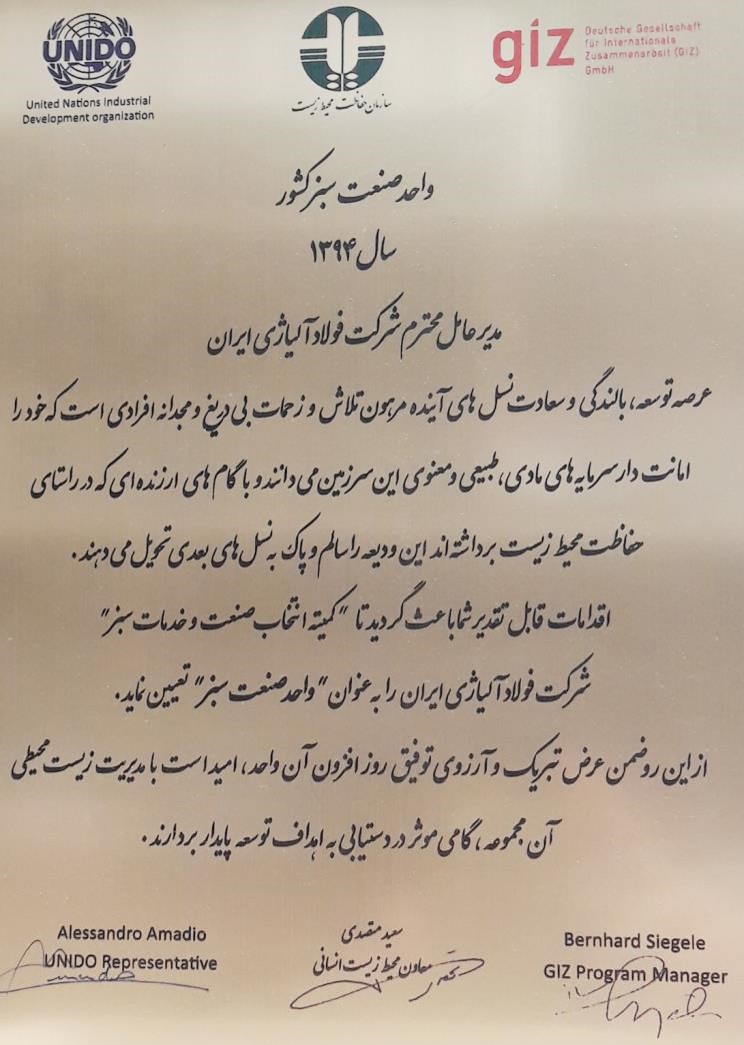 UNIDO
United Nations Industrial
Development organization
سازمان حفاظت محیط زیست
giz
Deutsche Gesellschaft
für Internationale
Zusammenarbeit (GIZ)
GmbH
واحد صنعت سبز کشور
سال ۱۳۹۴
مدیر عامل محترم شرکت فولاد آلیاژی ایران
عرصه توسعه، بالندگی و سعادت نسل های آینده مرهون تلاش و زحمات بی دریغ و مجدانه افرادی است که خود را
امانت دار سرمایه های مادی، طبیعی و معنوی این سرزمین می دانند و با گام های ارزنده ای که در راستای
حفاظت محیط زیست برداشته اند این ودیعه را سالم و پاک به نسل های بعدی تحویل می دهند.
اقدامات قابل تقدیر شما باعث گردید تا "کمیته انتخاب صنعت و خدمات سبز"
شرکت فولاد آلیاژی ایران را به عنوان "واحد صنعت سبز" تعیین نماید.
از این رو ضمن عرض تبریک و آرزوی توفیق روز افزون آن واحد، امید است با مدیریت زیست محیطی
آن مجموعه، گامی موثر در دستیابی به اهداف توسعه پایدار بردارند.
Alessandro Amadio
UNIDO Representative
سعید متصدی
معاون محیط زیست انسانی
Bernhard Siegele
GIZ Program Manager